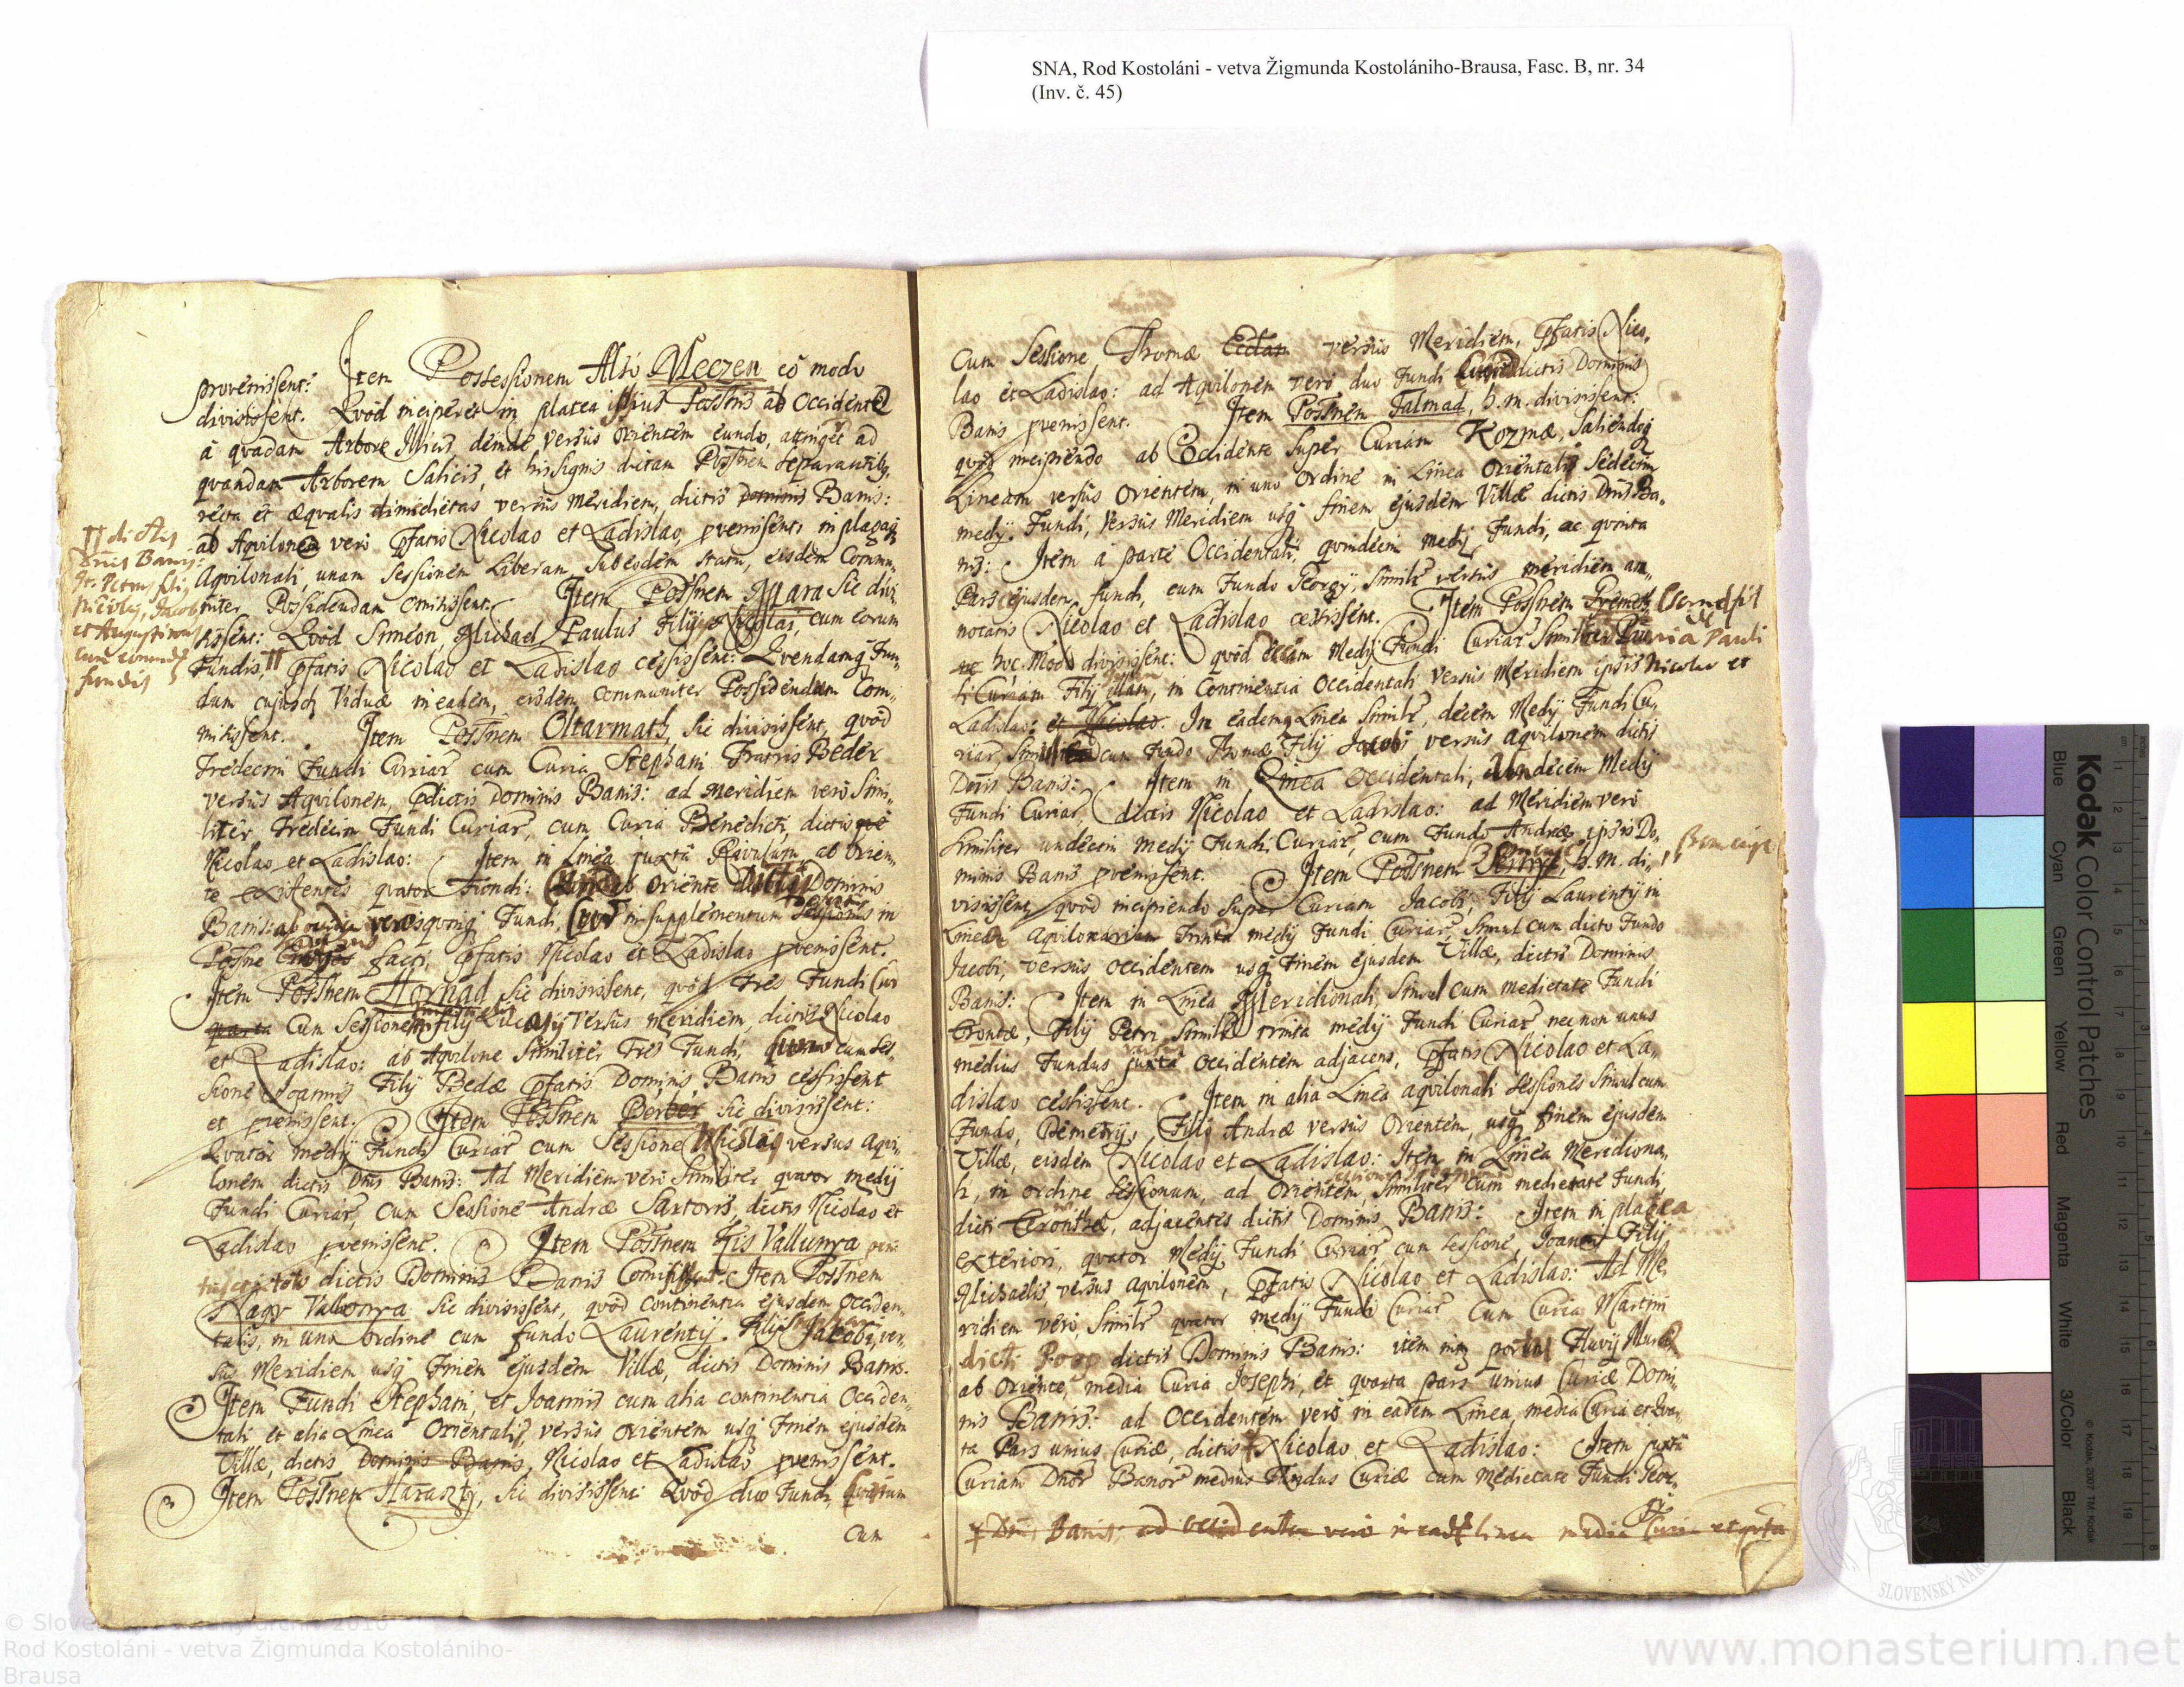 SNA, Rod Kostoláni - vetva Žigmunda Kostolániho-Brausa, Fasc. B, nr. 34
(Inv. č. 45)
provenissent: Item Possessionem Alsó Meczen eó modo
divisissent. Qvòd inciperet in platea ipsius Possnis ab Occidente
à qvadam Arbore Ilicis, deinde versùs Orientem eundo, attinget ad
qvandam Arborem Salicis, et his signis dictam Possnem separantibq
recta et æqvalis dimidietas versùs Meridiem, dictis Dominis Banis:
ad Aqvilonem verò pfatis Nicolao et Ladislao pvenissent, in plagaq
Aqvilonali, unam Sessionem Liberam, sub eodem statu, eisdem Commu„
niter Possidendam omisissent. Item Possnem Mara Sic divi„
sissent: Qvòd Simeon, Michael Paulus Filij Nicolai, cum eorum
Fundis, pfatis Nicolao et Ladislao cessissent: Qvendamq Fun„
dum cujusd Viduæ in eadem, eisdem communiter Possidendum Com„
misissent. Item Possnem Oltarmath, Sic divisissent, qvòd
Tredecim Fundi Curiar cum Curia Stephani Fratris Beder
versùs Aqvilonem, pdictis Dominis Banis: ad Meridiem verò Simi„
liter Tredecim Fundi Curiar, cum Curia Benedicti, dictis
Nicolao et Ladislao: Item in Linea juxtà Rivulum ab Orien„
te existentes qvator Fundi: ab Oriente dictis Dominis
Banis: verò qvinq Fundi, in supplementum Sessionis in
Possne facti, pfatis Nicolao et Ladislao pvenissent.
Item Possnem Hornad Sic divisissent, qvòd Tres Fundi Cur
Cum Sessione Filij versùs Meridiem, dictis Nicolao
et Ladislao: ab Aqvilone Similiter Tres Fundi, cum Ses„
sione Joannis Filij Bedæ pfatis Dominis Banis cessissent
et pvenissent. Item Possnem Berber Sic divisissent:
Qvator medij Fundi Curiar cum Sessione Nicolai versus Aqvi„
lonem dictis Dnis Banis: Ad Meridiem verò Similiter qvator medij
Fundi Curiar, cum Sessione Andreæ Sartoris, dictis Nicolao et
Ladislao pvenissent. Item Possnem Kis Vallunya
dictis Dominis Banis Item Possnem
Nagy Vallunya Sic divisissent, qvòd continentia ejusdem Occiden„
talis, in uno ordine cum fundo Laurentij Filij Jacobi, ver„
sùs Meridiem usq Finem ejusdem Villæ, dictis Dominis Banis.
Item Fundi Stephani, et Joannis cum alia continentia Occiden„
tali et alia Linea Orientali, versùs Orientem usq Finem ejusdem
Villæ, dictis Dominis Banis, Nicolao et Ladislao pvenissent.
Item Possnem Haraszty, Sic divisissent: Qvòd duo Fundi
Cum
dictis
Dnis Banis:
Nicolai, Jacob
et Augustinus
fundis
Cum Sessione Thomæ versùs Meridiem, pfatis Nico„
lao et Ladislao: ad Aqvilonem verò duo Fundi dictis Dominis
Banis pvenissent. Item Possnem Talmad, h. m. divisissent:
qvòd incipiendo ab Occidente super Curiam Kozmæ, saliendoq
Lineam versùs Orientem, in uno ordine in Linea Orientali Sedecim
medij Fundi, versùs Meridiem usq finem ejusdem Villæ dictis Dnis Ba„
nis: Item à parte Occidentali, qvindecim medij Fundi, ac qvinta
Pars ejusdem fundi, cum Fundo Georgij, Similr versùs meridiem an„
notatis Nicolao et Ladislao cessissent. Item Possnem
hoc Modo divisissent: qvòd Medij Fundi Curiar
Filij in Continentia Occidentali versùs Meridiem ipsis Nicolao et
Ladislao: et Nicolao. In eademq Linea Similr, decem Medij Fundi Cu„
riar, cum Fundo Thomæ Filij Jacobi versùs Aqvilonem dictis
Dnis Banis: Item in Linea Occidentali, undecem Medij
Fundi Curiar, dictis Nicolao et Ladislao: ad Meridiem verò
Similiter undecem medij Fundi Curiar, cum Fundo Andreæ ipsis Do„
minis Banis pvenissent. Item Possnem h. m. di„
visissent, qvòd incipiendo super Curiam Jacobi, Filij Laurentij in
Linea Triinta medij Fundi Curiar, simul cum dicto Fundo
Jacobi, versùs Occidentem usq Finem ejusdem Villæ, dictis Dominis
Banis: Item in Linea Meridionali, simul cum medietate Fundi
Filij Petri, Similr triinta medij Fundi Curiar, nec non unus
medius Fundus juxtà Occidentem adjacens, pfatis Nicolao et La„
dislao cessissent. Item in alia Linea aqvilonali Sessiones simul cum
Fundo, Demetrij, Filij Andreæ versus Orientem, usq finem ejusdem
Villæ, eisdem Nicolao et Ladislao: Item in Linea Meridiona„
li, in ordine Sessionum, ad Orientem, Similiter cum medietate Fundi,
dicti adjacentes dictis Dominis Banis: Item in platea
exteriori, qvator Medij Fundi Curiar cum Sessione, Joannis Filij
Michaelis, versùs aqvilonem, pfatis Nicolao et Ladislao: Ad Me„
ridiem verò, Similr qvator medij Fundi Curiar Cum Curia Martini
dicti Poop dictis Dominis Banis: item Fluvij
ab Oriente, media Curia Josephi, et qvarta pars unius Curiæ Domi„
nis Banis: ad Occidentem verò in eadem Linea, media Curia et Qvar„
ta Pars unius Curiæ, dictis Nicolao et Ladislao: Item juxtà
Curiam Dnor Banor medius Fundus Curiæ cum medietate Fundi Geor„
gij
Dnis Banis: ad Occidentem verò in eadem linea media Curia et qvarta
Kodak Color Control Patches
Blue Cyan Green Yellow Red Magenta White 3/Color Black
© Kodak, 2007 TM: Kodak
SLOVENSKÝ NÁR
Rod Kostoláni - vetva Žigmunda Kostolániho-
Brausa
www.monasterium.net